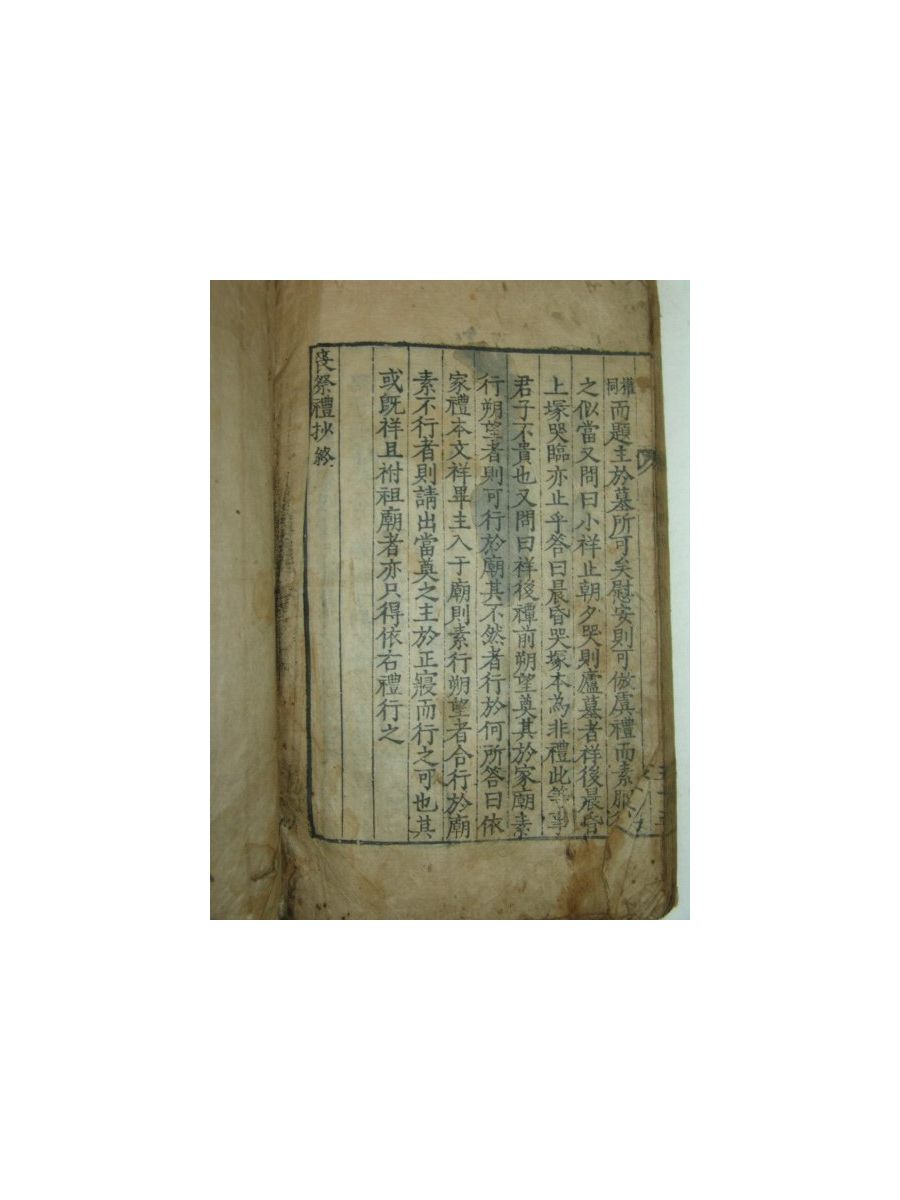 權同而題主於墓所可矣慰安則可倣虞禮而素服
之似當又問曰小祥止朝夕哭則廬墓者祥後晨昏
上塚哭臨亦止乎答曰晨昏哭塚本為非禮此等事
君子不貴也又問曰祥後禫前朔望奠其於家廟素
行朔望者則可行於廟其不然者行於何所答曰依
家禮本文祥畢主入于廟則素行朔望者合行於廟
素不行者則請出當奠之主於正寢而行之可也其
或旣祥且祔祖廟者亦只得依右禮行之
喪祭禮抄 終